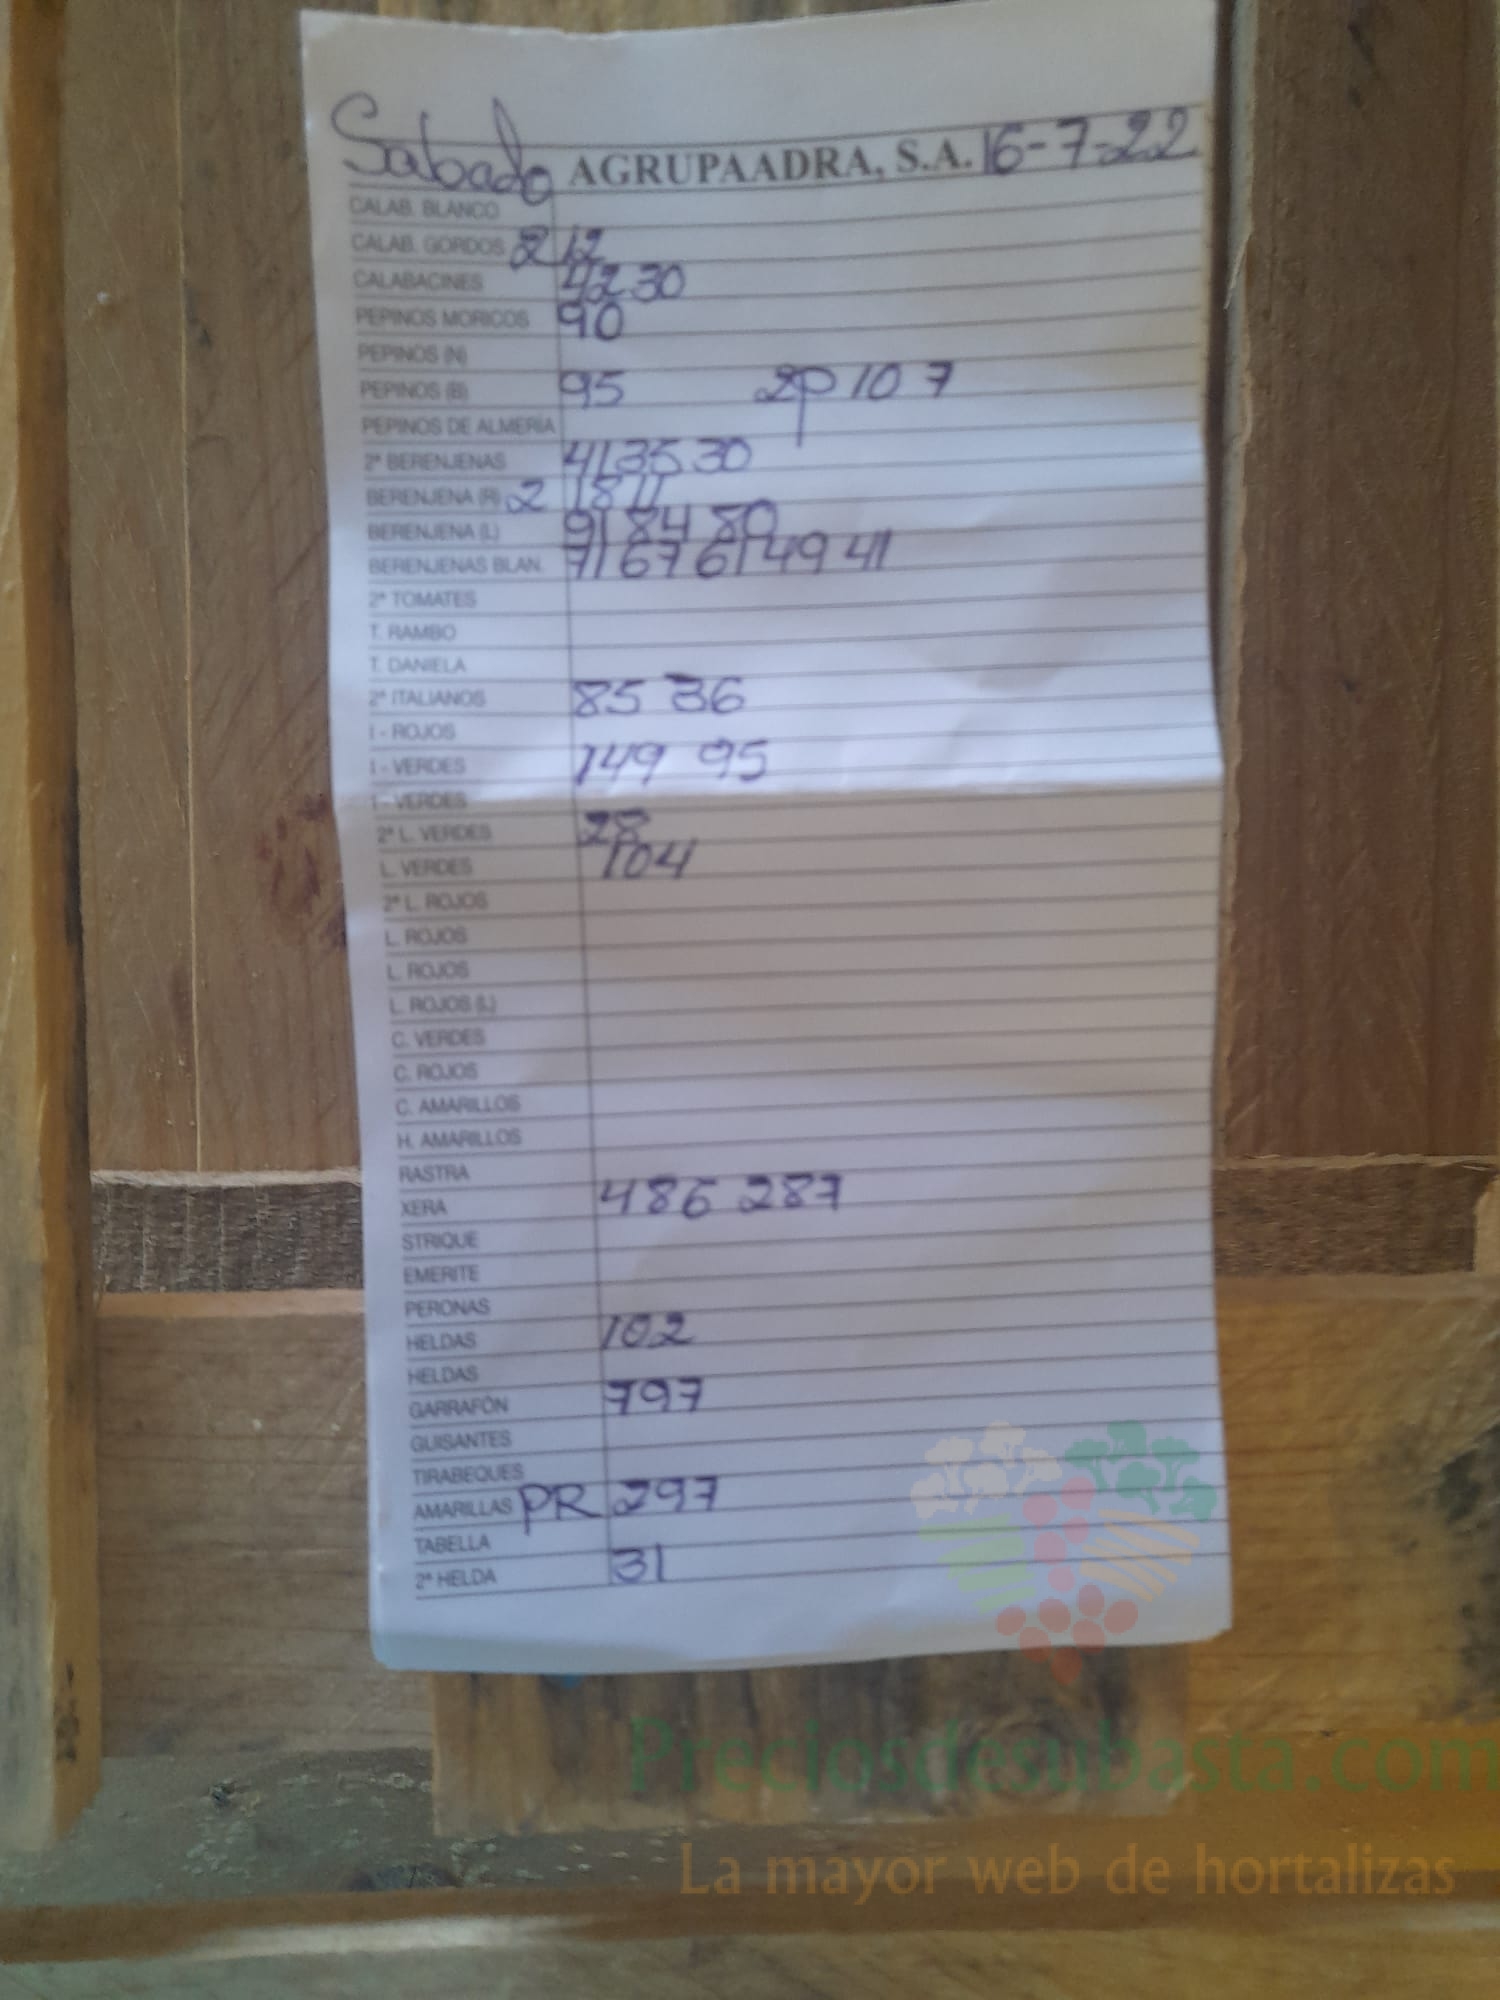 Sabado AGRUPAADRA, S.A. 16-7-22
CALAB. BLANCO
CALAB. GORDOS 2 12
CALABACINES 42 30
PEPINOS MORICOS 90
PEPINOS (N)
PEPINOS (B) 95 2p 10 7
PEPINOS DE ALMERÍA
2ª BERENJENAS 41 35 30
BERENJENA (R) 2 18 11
BERENJENA (L) 91 84 80
BERENJENAS BLAN. 71 67 61 49 41
2ª TOMATES
T. RAMBO
T. DANIELA
2ª ITALIANOS 85 36
I - ROJOS
I - VERDES 149 95
I - VERDES
2ª L. VERDES 28
L. VERDES 104
2ª L. ROJOS
L. ROJOS
L. ROJOS
L. ROJOS (L)
C. VERDES
C. ROJOS
C. AMARILLOS
H. AMARILLOS
RASTRA
XERA 486 287
STRIQUE
EMERITE
PERONAS
HELDAS 102
HELDAS
GARRAFÓN 797
GUISANTES
TIRABEQUES
AMARILLAS PR 297
TABELLA
2ª HELDA 31
Preciosdesubasta.com
La mayor web de hortalizas